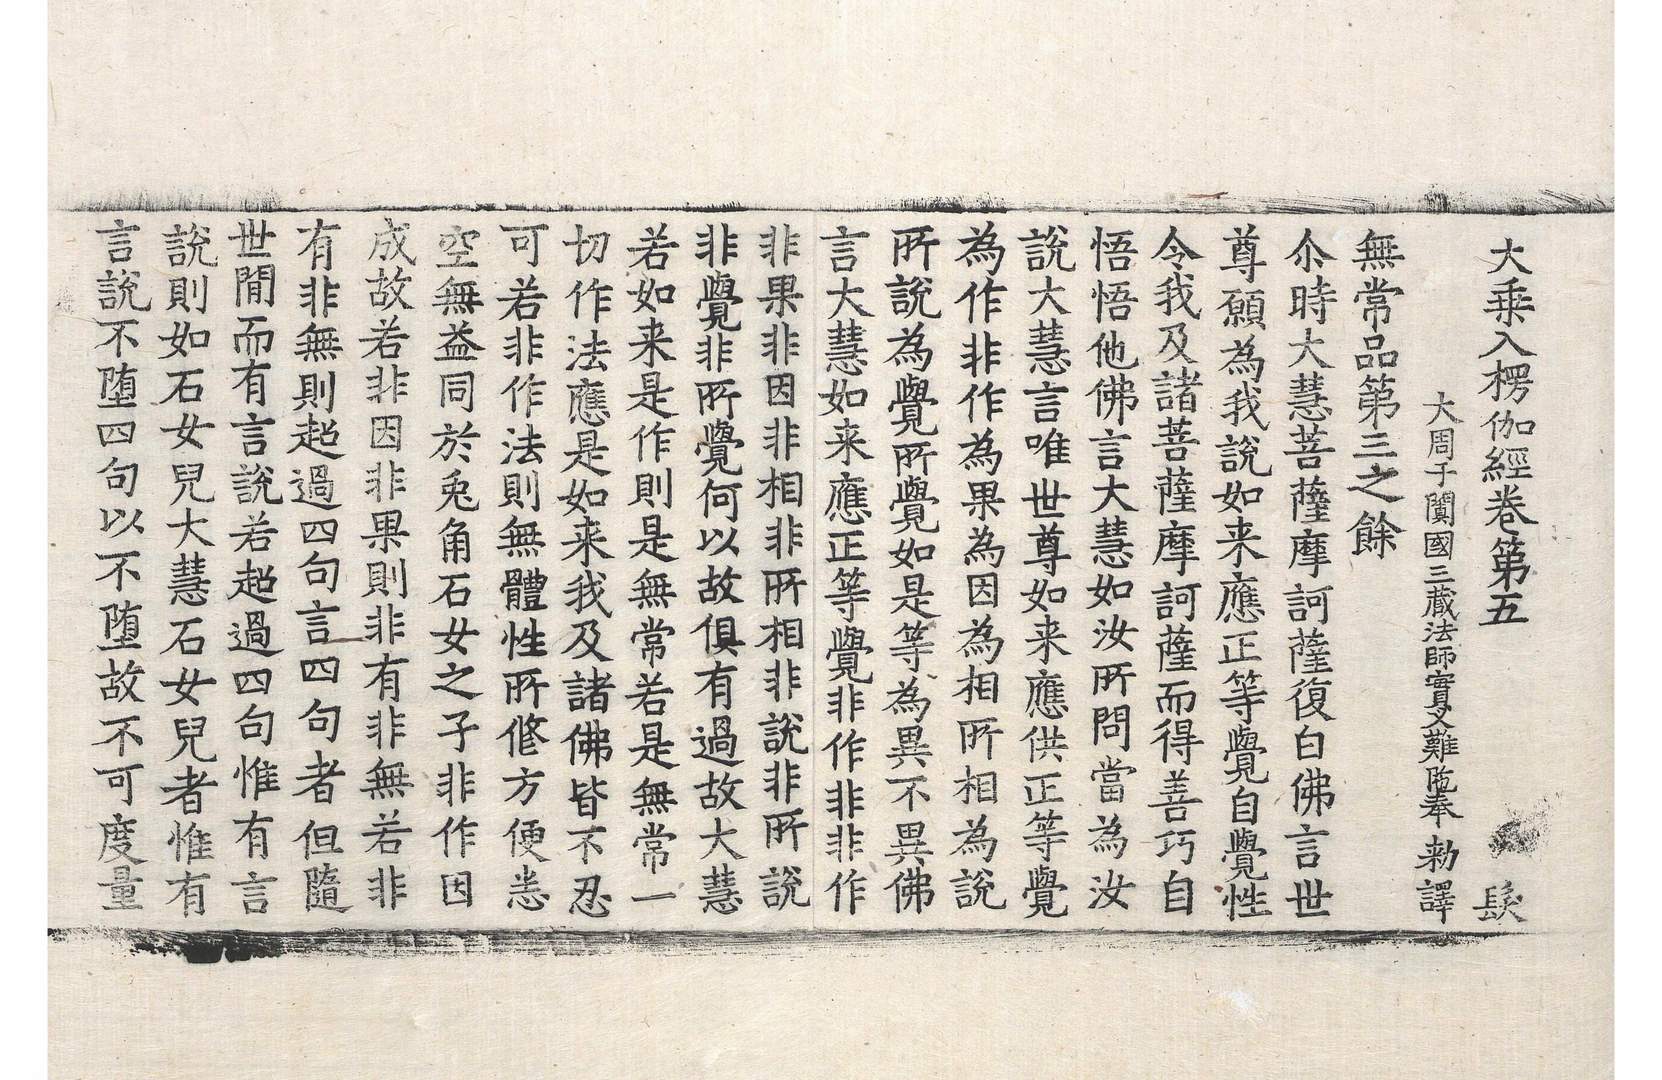 大乘入楞伽經卷第五 髮
大周于闐國三藏法師實叉難陁奉 勅譯
無常品第三之餘
尒時大慧菩薩摩訶薩復白佛言世
尊願為我說如来應正等覺自覺性
令我及諸菩薩摩訶薩而得善巧自
悟悟他佛言大慧如汝所問當為汝
說大慧言唯世尊如来應供正等覺
為作非作為果為因為相所相為說
所說為覺所覺如是等為異不異佛
言大慧如来應正等覺非作非非作
非果非因非相非所相非說非所說
非覺非所覺何以故俱有過故大慧
若如来是作則是無常若是無常一
切作法應是如来我及諸佛皆不忍
可若非作法則無體性所修方便悉
空無益同於兎角石女之子非作因
成故若非因非果則非有非無若非
有非無則超過四句言四句者但隨
世間而有言說若超過四句惟有言
說則如石女兒大慧石女兒者惟有
言說不墮四句以不墮故不可度量